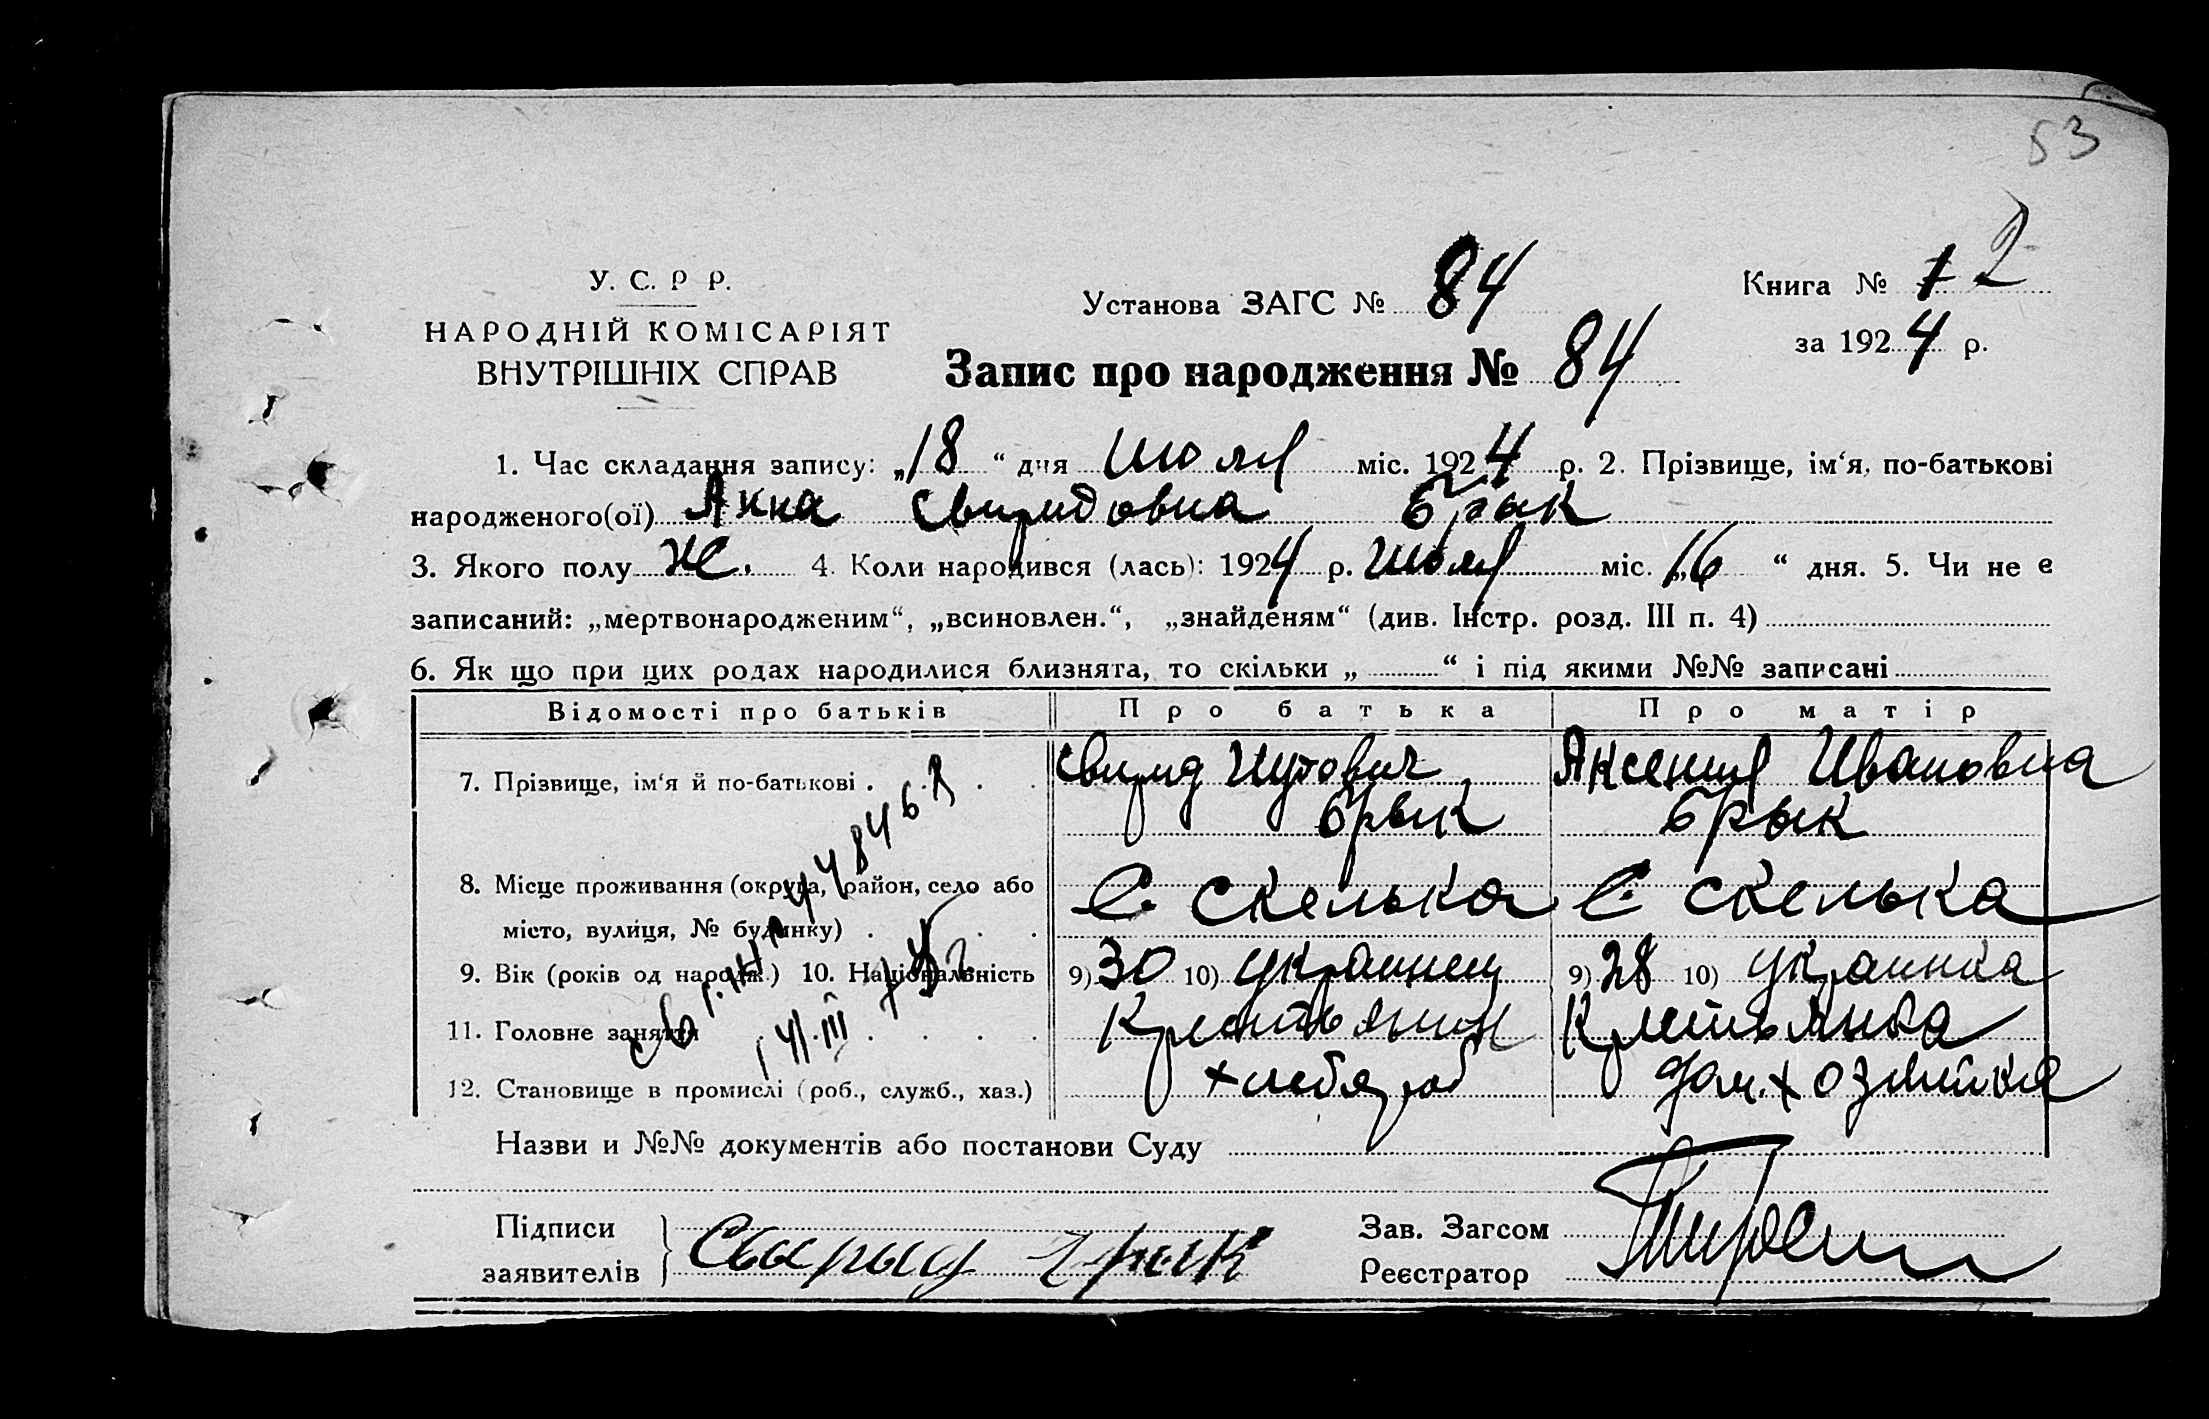 53
У. С. Р. Р.
НАРОДНІЙ КОМІСАРІЯТ
ВНУТРІШНІХ СПРАВ
Установа ЗАГС № 84
Книга № 1 2
за 1924 р.
Запис про народження № 84
1. Час складання запису: „18“ дня Июля міс. 1924 р. 2. Прізвище, ім‘я, по-батькові
народженого(ої) Анна Свиридовна Брык
3. Якого полу ж. 4. Коли народився (лась): 1924 р. Июля міс. „16“ дня. 5. Чи не є
записаний: „мертвонародженим“, „всиновлен.“, „знайденям“ (див. Інстр. розд. III п. 4)
6. Як що при цих родах народилися близнята, то скільки „ “ і під якими №№ записані
Відомості про батьків Про батька Про матір
7. Прізвище, ім‘я й по-батькові Свирид Брык Аксения Ивановна Брык
8. Місце проживання (округа, район, село або місто, вулиця, № будинку) С. Скелька С. Скелька
9. Вік (років од народж.) 10. Національність 9) 30 10) украинец 9) 28 10) украинка
11. Головне заняття Крестьянин Крестьянка
12. Становище в промислі (роб., служб., хаз.) хлебороб дом. хозяйка
Назви и №№ документів або постанови Суду
Підписи
заявителів
Свирыд Брык
Зав. Загсом
Реєстратор